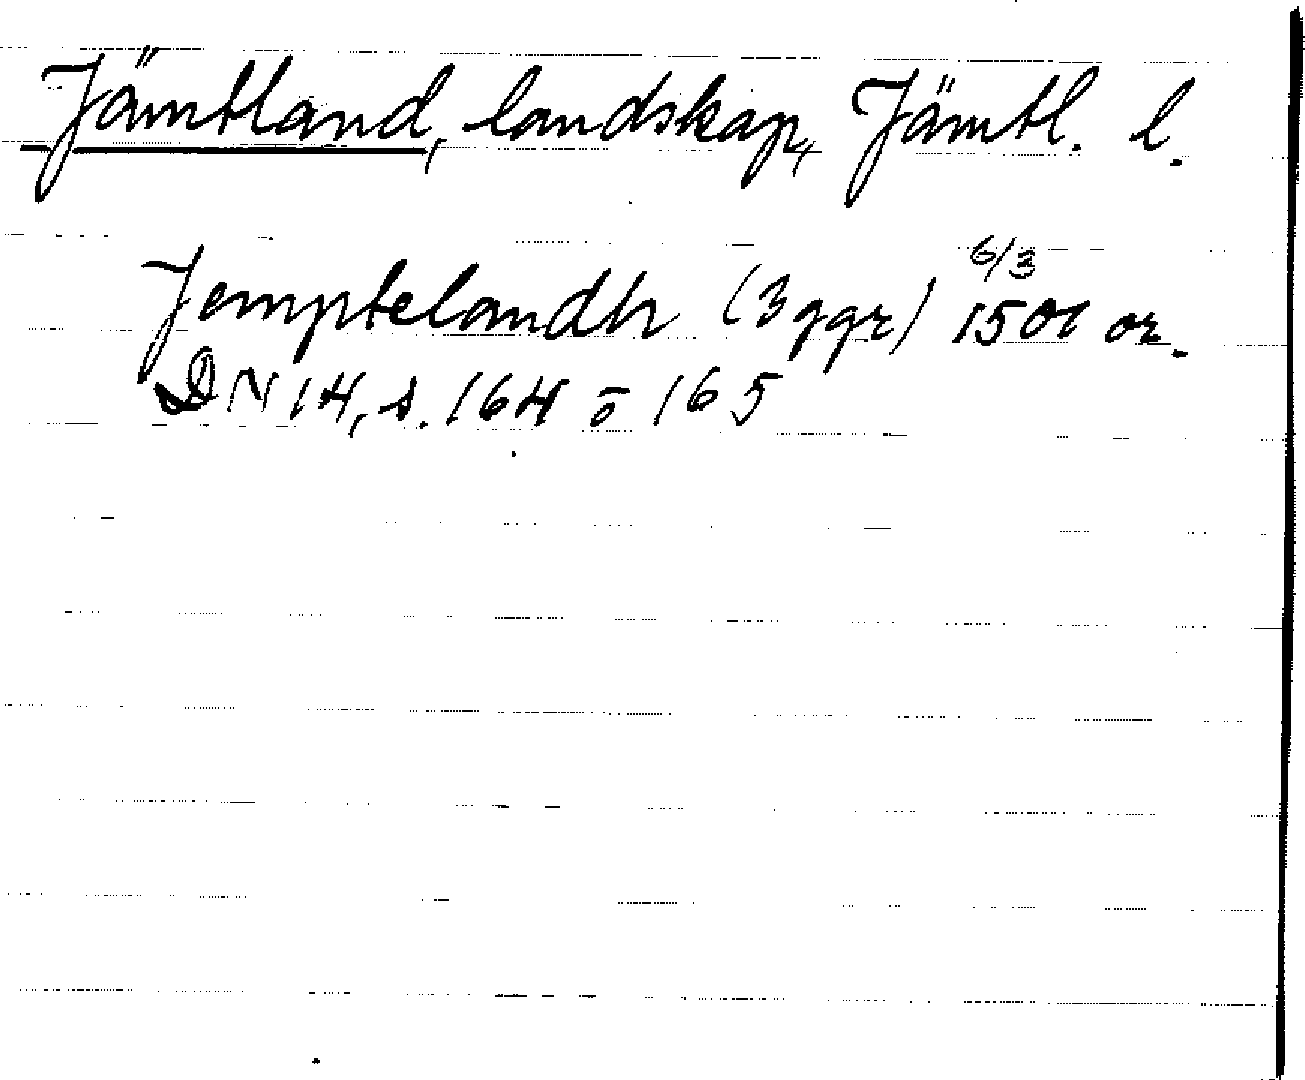 Jämtland, landskap, Jämtl. l.
Jemptelandh (3 ggr) 6/3 1501 or.
DN 14, s. 164 o 165